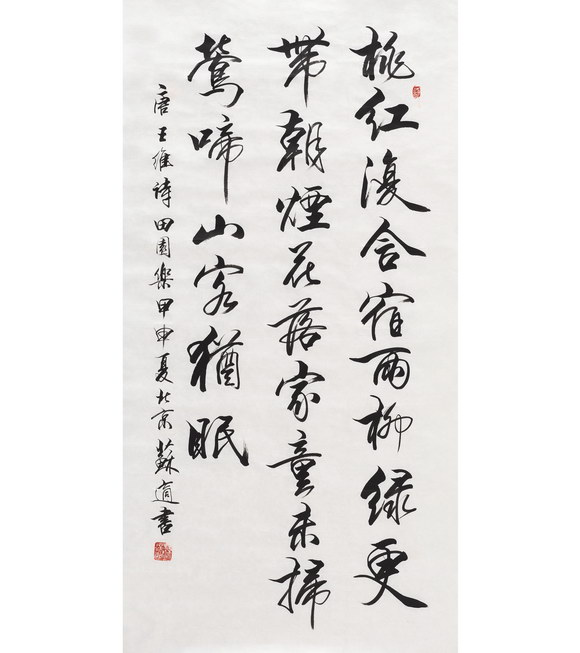 桃红復含宿雨柳绿更
带朝煙花落家童未掃
莺啼山客猶眠
唐王維诗田園樂甲申夏北京蘇適书